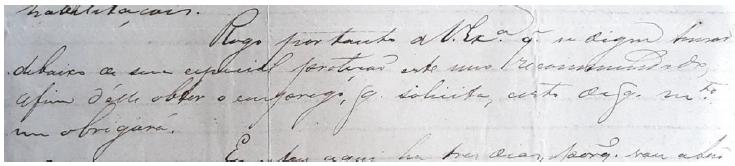 habilitacões.
Rogo portanto a V. Exª. q̃ se digne tomar
debaixo de sua especial protecão este meu recommendado,
afim d'elle obter o emprego, q. solicita, certo de q. mᵗᵒ.
me obrigará.
Eu estou aqui ha tres dias, porq.